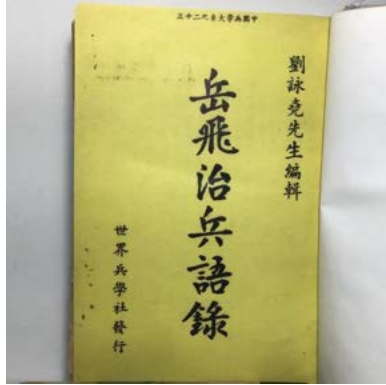 中國兵學大系之二十三
劉詠堯先生編輯
岳飛治兵語錄
世界兵學社發行